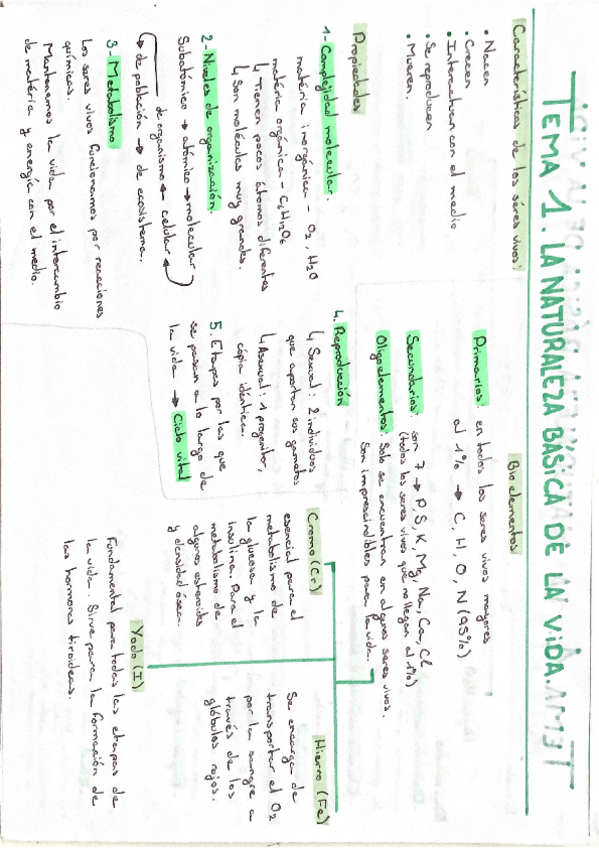 TEMA 1. LA NATURALEZA BÁSICA DE LA VIDA.
Características de los séres vivos:
• Nacen
• Crecen
• Interactuan con el medio
• Se reproducen
• Mueren.
Propiedades
1- Complejidad molecular.
matéria inorgánica - O2, H2O
matéria orgánica - C6H12O6
↳ Tienen pocos átomos diferentes
↳ Son moléculas muy grandes.
2- Niveles de organización.
Subatómico → atómico → molecular
de organismo ← celular
↳ de población → de ecosistema.
3- Metabolismo
Los seres vivos funcionamos por reacciones
químicas.
Mantenemos la vida por el intercambio
de matéria y energía con el medio.
Bioelementos
Primarios: en todos los seres vivos mayores
al 1% → C, H, O, N (95%)
Secundarios: son 7 → P, S, K, Mg, Na, Ca, Cl
(todos los seres vivos que no llegan al 1%)
Oligoelementos: Solo se encuentran en algunos seres vivos.
Son imprescindibles para la vida.
4. Reproducción
↳ Sexual: 2 individuos
que aportan sus gametos
↳ Asexual: 1 progenitor,
cópia idéntica.
5. Etapas por las que
se pasan a lo largo de
la vida → Ciclo vital
Cromo (Cr)
esencial para el
metabolismo de
la glucosa y la
insulina. Para el
metabolismo de
algunos esteroides
y densidad ósea.
Hierro (Fe)
Se encarga de
transportar el O2
por la sangre a
través de los
glóbulos rojos.
Yodo (I)
Fundamental para todas las etapas de
la vida. Sirve para la formación de
las hormonas tiroideas.